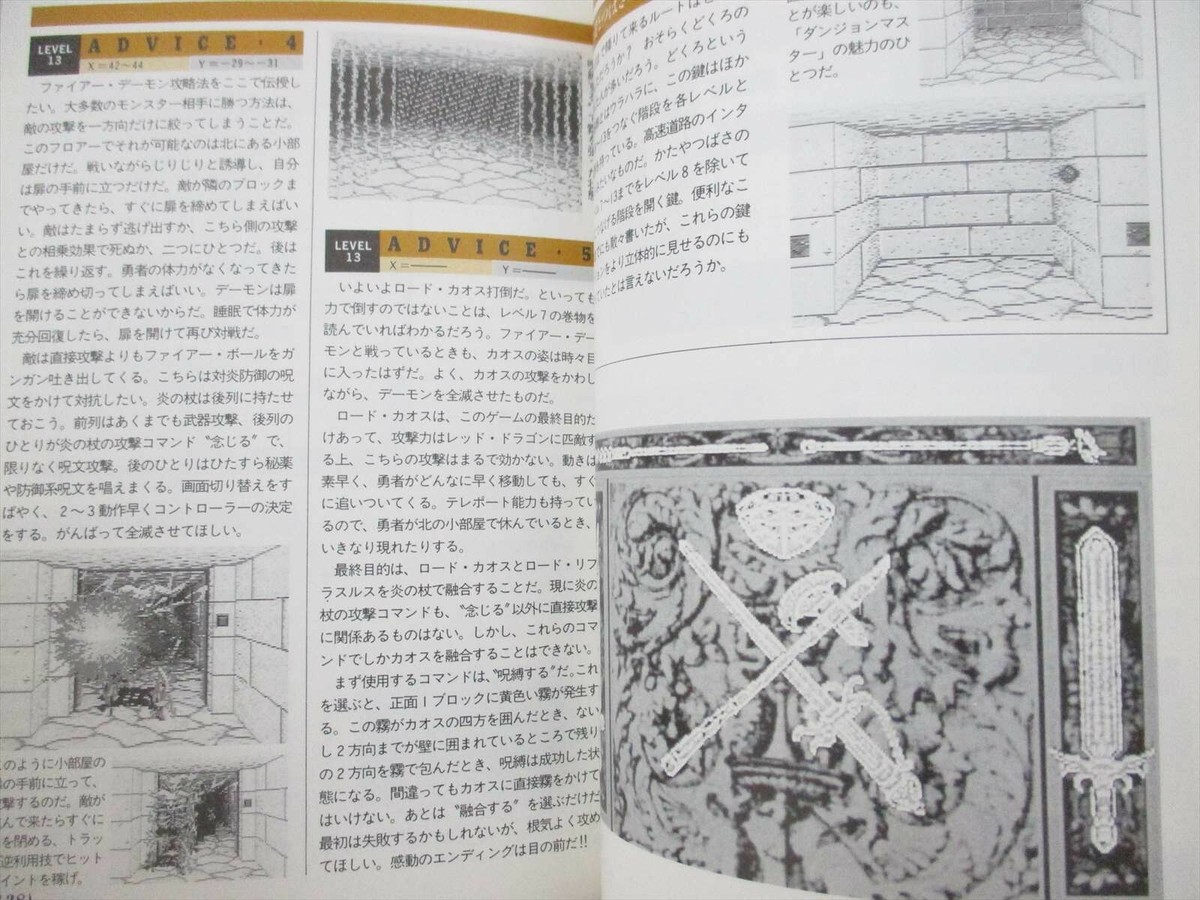 LEVEL 13
ADVICE・4
X=42〜44 Y=-29〜-31
ファイアー・デーモン攻略法をここで伝授し
たい。大多数のモンスター相手に勝つ方法は、
敵の攻撃を一方向だけに絞ってしまうことだ。
このフロアーでそれが可能なのは北にある小部
屋だけだ。戦いながらじりじりと誘導し、自分
は扉の手前に立つだけだ。敵が隣のブロックま
でやってきたら、すぐに扉を締めてしまえばい
い。敵はたまらず逃げ出すか、こちら側の攻撃
との相乗効果で死ぬか、二つにひとつだ。後は
これを繰り返す。勇者の体力がなくなってきた
ら扉を締め切ってしまえばいい。デーモンは扉
を開けることができないからだ。睡眠で体力が
充分回復したら、扉を開けて再び対戦だ。
敵は直接攻撃よりもファイアー・ボールをガ
ンガン吐き出してくる。こちらは対炎防御の呪
文をかけて対抗したい。炎の杖は後列に持たせ
ておこう。前列はあくまでも武器攻撃、後列の
ひとりが炎の杖の攻撃コマンド〝念じる〟で、
限りなく呪文攻撃。後のひとりはひたすら秘薬
や防御系呪文を唱えまくる。画面切り替えをす
ばやく、2〜3動作早くコントローラーの決定
をする。がんばって全滅させてほしい。
このように小部屋の
の手前に立って、
撃するのだ。敵が
んで来たらすぐに
を閉める、トラッ
逆利用技でヒット
イントを稼げ。
LEVEL 13
ADVICE・5
X=―― Y=――
いよいよロード・カオス打倒だ。といっても
力で倒すのではないことは、レベル7の巻物を
読んでいればわかるだろう。ファイアー・デー
モンと戦っているときも、カオスの姿は時々目
に入ったはずだ。よく、カオスの攻撃をかわし
ながら、デーモンを全滅させたものだ。
ロード・カオスは、このゲームの最終目的だ
けあって、攻撃力はレッド・ドラゴンに匹敵す
る上、こちらの攻撃はまるで効かない。動きは
素早く、勇者がどんなに早く移動しても、すぐ
に追いついてくる。テレポート能力も持ってい
るので、勇者が北の小部屋で休んでいるとき、
いきなり現れたりする。
最終目的は、ロード・カオスとロード・リブ
ラスルスを炎の杖で融合することだ。現に炎の
杖の攻撃コマンドも、〝念じる〟以外に直接攻撃
に関係あるものはない。しかし、これらのコマ
ンドでしかカオスを融合することはできない。
まず使用するコマンドは、〝呪縛する〟だ。これ
を選ぶと、正面1ブロックに黄色い霧が発生す
る。この霧がカオスの四方を囲んだとき、ない
し2方向までが壁に囲まれているところで残り
の2方向を霧で包んだとき、呪縛は成功した状
態になる。間違ってもカオスに直接霧をかけて
はいけない。あとは〝融合する〟を選ぶだけだ
最初は失敗するかもしれないが、根気よく攻め
てほしい。感動のエンディングは目の前だ!!
で降りて来るルートは
だろうか? おそらくどくろの
人が多いだろう。どくろという
とはウラハラに、この鍵はほか
13をつなぐ階段を各レベルと
持っている。高速道路のインタ
たいなものだ。かたやつばさの
〜13までをレベル8を除いて
つなげる階段を開く鍵。便利なこ
にも散々書いたが、これらの鍵
ョンをより立体的に見せるのにも
ていたとは言えないだろうか。
とが楽しいのも、
「ダンジョンマス
ター」の魅力のひ
とつだ。